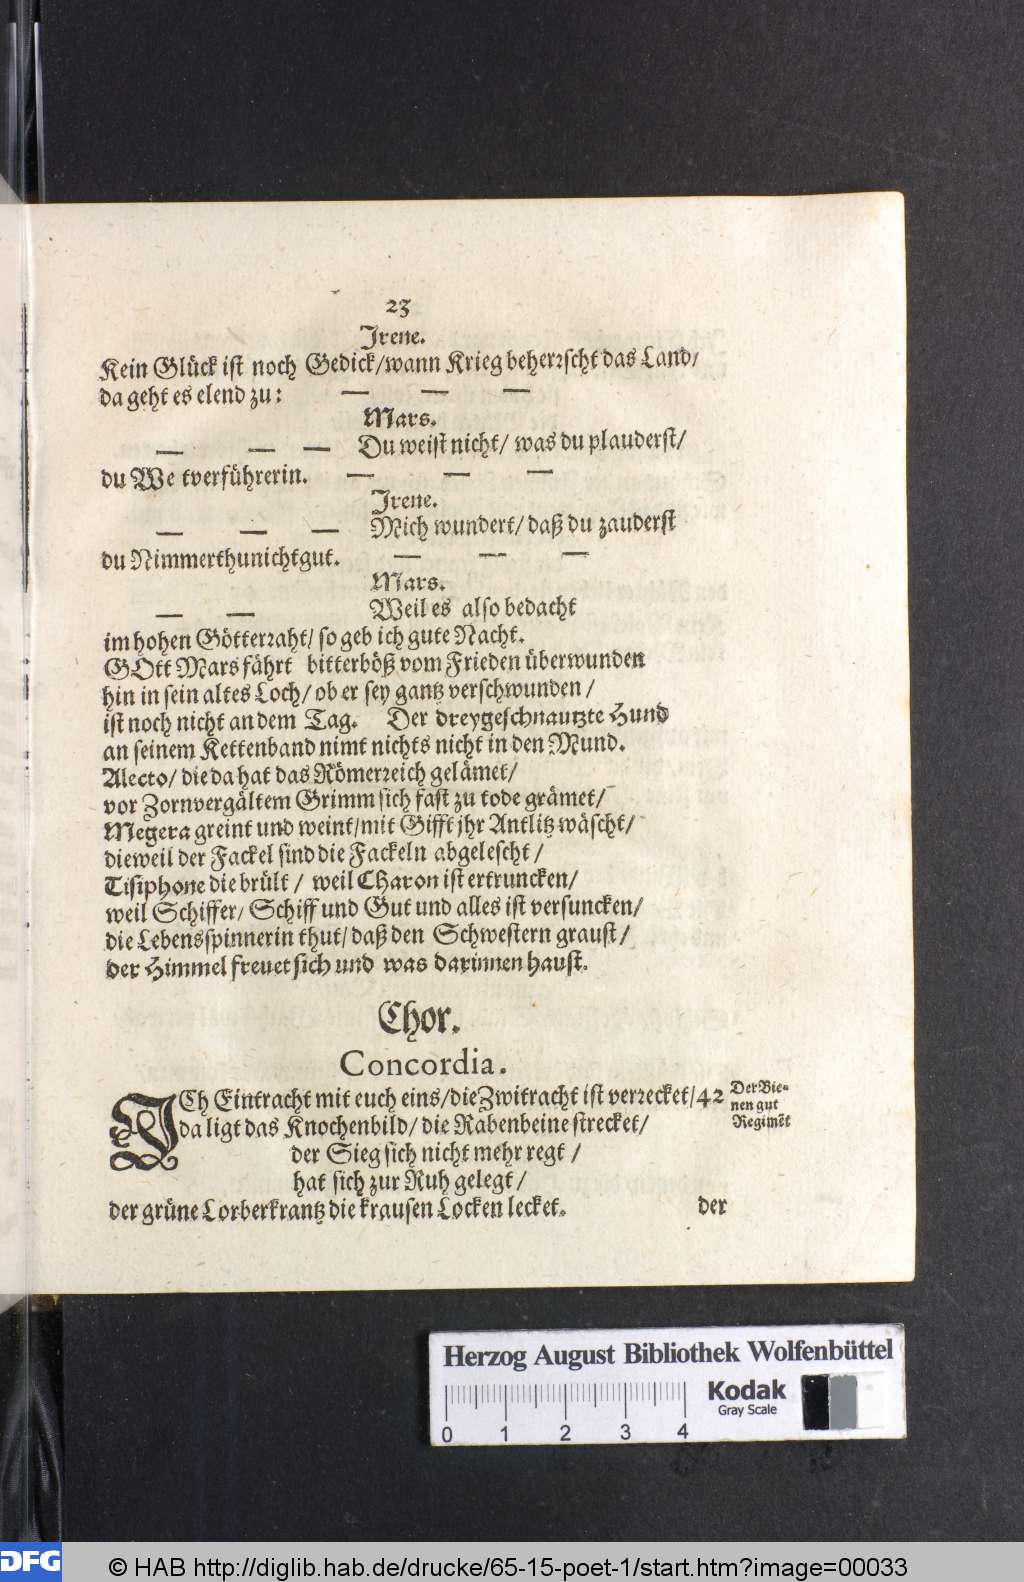 23
Irene.
Kein Glück ist noch Gedick/wann Krieg beherꝛscht das Land/
da geht es elend zu: — — —
Mars.
— — — Du weist nicht/ was du plauderst/
du We tverführerin. — — —
Irene.
— — — Mich wundert/ daß du zauderst
du Nimmerthunichtgut. — — —
Mars.
— — Weil es also bedacht
im hohen Götterꝛaht/ so geb ich gute Nacht.
GOtt Mars fährt bitterböß vom Frieden überwunden
hin in sein altes Loch/ ob er sey gantz verschwunden /
ist noch nicht an dem Tag. Der dreygeschnautzte Hund
an seinem Kettenband nimt nichts nicht in den Mund.
Alecto/ die da hat das Römerꝛeich gelämet/
vor Zornvergältem Grimm sich fast zu tode grämet/
Megera greint und weint/mit Gifft jhr Antlitz wäscht/
dieweil der Fackel sind die Fackeln abgelescht /
Tisiphone die brült / weil Charon ist ertruncken/
weil Schiffer/ Schiff und Gut und alles ist versuncken/
die Lebensspinnerin thut/ daß den Schwestern graust/
der Himmel freuet sich und was darinnen haust.
Chor.
Concordia.
ICh Eintracht mit euch eins/die Zwitracht ist verꝛecket/ 42
da ligt das Knochenbild/ die Rabenbeine strecket/
der Sieg sich nicht mehr regt /
hat sich zur Ruh gelegt /
der grüne Lorberkrantz die krausen Locken lecket.
der
Der Bie-
nen gut
Regimẽt
Herzog August Bibliothek Wolfenbüttel
Kodak
Gray Scale
0 1 2 3 4
DFG
© HAB http://diglib.hab.de/drucke/65-15-poet-1/start.htm?image=00033